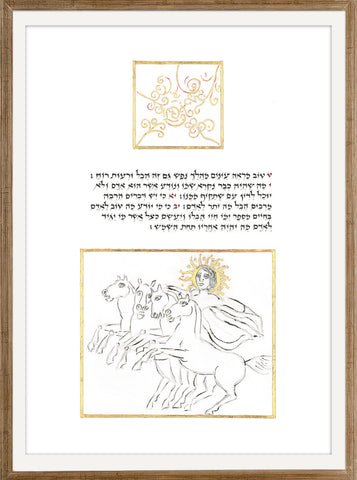 ט טוב מראה עינים מהלך נפש גם זה הבל ורעות רוח :
י מה שהיה כבר נקרא שמו ונודע אשר הוא אדם ולא
יוכל לדין עם שתקיף ממנו : יא כי יש דברים הרבה
מרבים הבל מה יתר לאדם : יב כי מי יודע מה טוב לאדם
בחיים מספר ימי חיי הבלו ויעשם כצל אשר מי יגיד
לאדם מה יהיה אחריו תחת השמש :